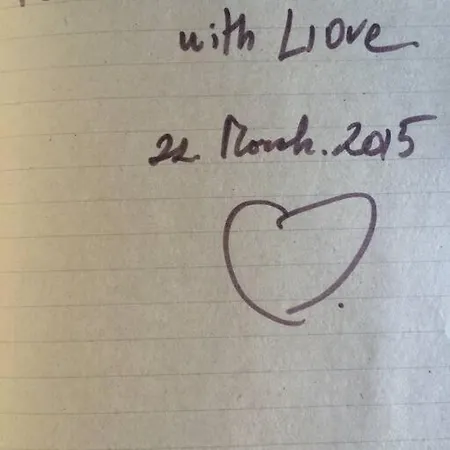 with Love
22 March. 2015